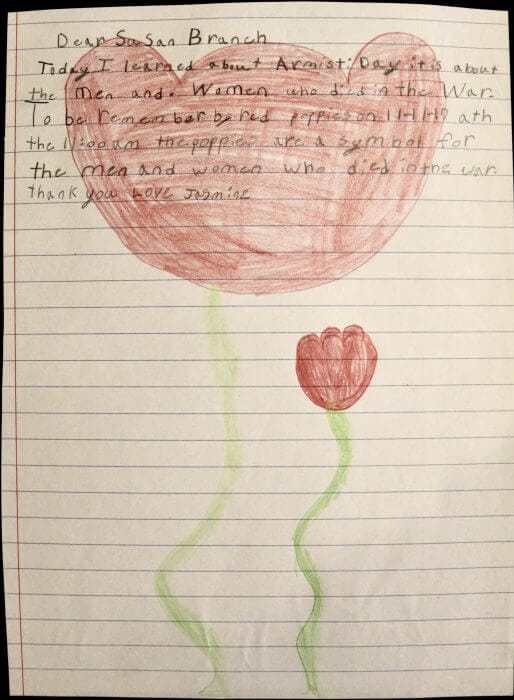 Dear Sasan Branch
Today I learned about Armisti Day it is about
the Men and. Women who died in the War.
To be remember by red poppies on 11-11-17 ath
the 11:00 am the poppies are a symbol for
the men and women who died in the war.
Thank you LOVE Jasmine